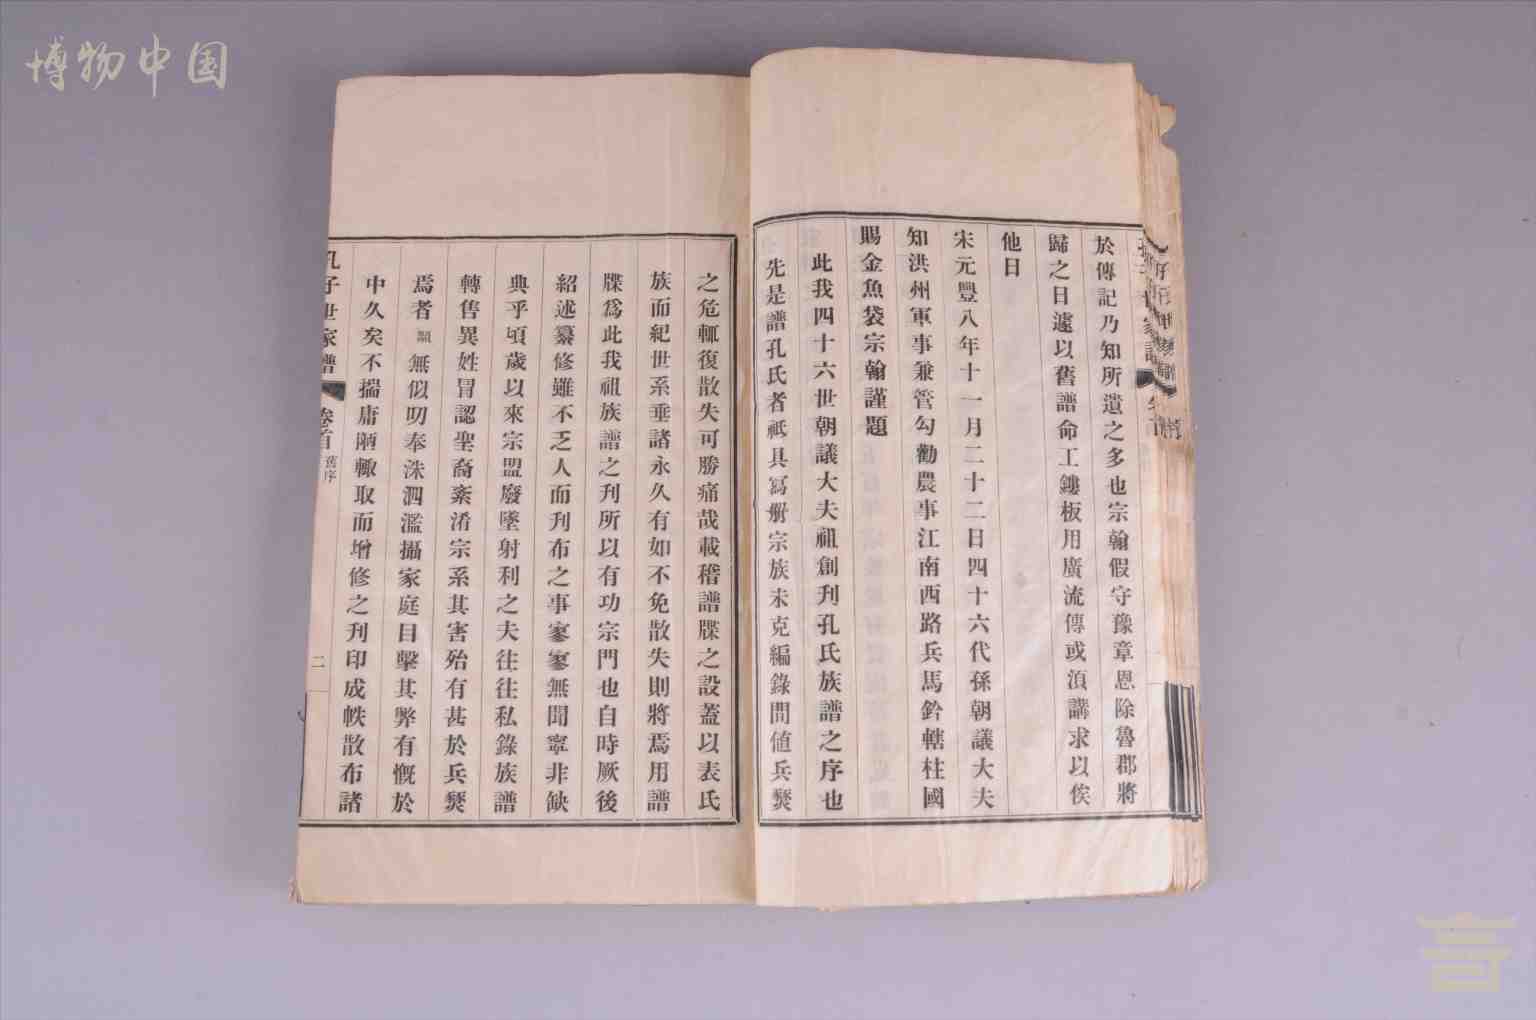 博物中国
於傳記乃知所遺之多也宗翰假守豫章恩除魯郡將
歸之日遽以舊譜命工鏤板用廣流傳或湏講求以俟
他日
宋元豐八年十一月二十二日四十六代孫朝議大夫
知洪州軍事兼管勾勸農事江南西路兵馬鈐轄柱國
賜金魚袋宗翰謹題
此我四十六世朝議大夫祖創刋孔氏族譜之序也
先是譜孔氏者祗具寫册宗族未克編錄間値兵燹
之危輒復散失可勝痛哉載稽譜牒之設蓋以表氏
族而紀世系垂諸永久有如不免散失則將焉用譜
牒爲此我祖族譜之刋所以有功宗門也自時厥後
紹述纂修雖不乏人而刋布之事寥寥無聞寧非缺
典乎頃歲以來宗盟廢墜射利之夫往往私錄族譜
轉售異姓冒認聖裔紊淆宗系其害殆有甚於兵燹
焉者顒無似叨奉洙泗濫攝家庭目擊其弊有慨於
中久矣不揣庸陋輙取而增修之刋印成帙散布諸
孔子世家譜 卷首 舊序 二